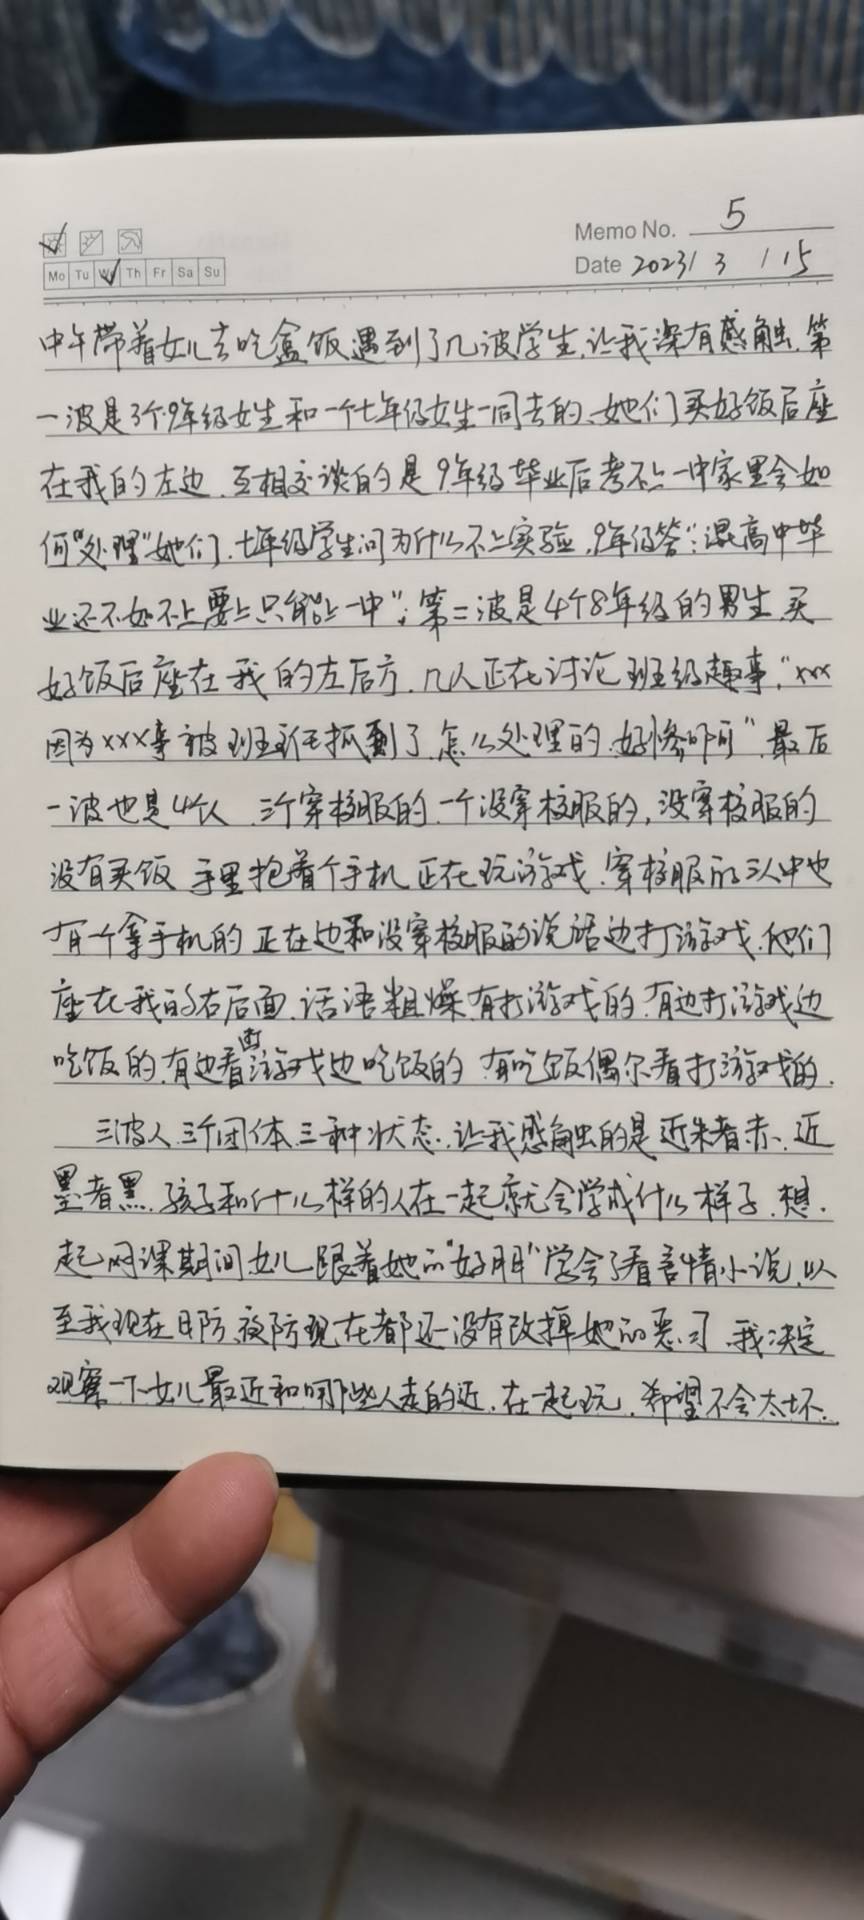 Memo No. 5
Mo Tu We Th Fr Sa Su
Date 2023 / 3 / 15
中午带着女儿去吃盒饭遇到了几波学生,让我深有感触.第
一波是3个9年级女生和一个七年级女生一同去的、她们买好饭后座
在我的左边.互相交谈的是9年级毕业后考不上一中家里会如
何"处理"她们.七年级学生问为什么不上实验,9年级答:"混高中毕
业还不如不上要上只能上一中";第二波是4个8年级的男生.买
好饭后座在我的左后方.几人正在讨论班级趣事,"xxx
因为xxx事被班主任抓到了.怎么处理的.好惨啊"最后
一波也是4个人 三个穿校服的.一个没穿校服的,没穿校服的
没有买饭 手里抱着个手机 正在玩游戏.穿校服的三人中也
有一个拿手机的 正在边和没穿校服的说话边打游戏.他们
座在我的右后面.话语粗燥.有打游戏的.有边打游戏边
吃饭的.有边看打游戏边吃饭的 有吃饭偶尔看打游戏的.
三波人.三个团体.三种状态.让我感触的是近朱者赤.近
墨者黑.孩子和什么样的人在一起就会学成什么样子.想
起网课期间女儿跟着她的"好朋"学会了看言情小说.以
至我现在日防.夜防现在都还没有改掉她的恶习.我决定
观察一下女儿最近和哪些人走的近.在一起玩.希望不会太坏.